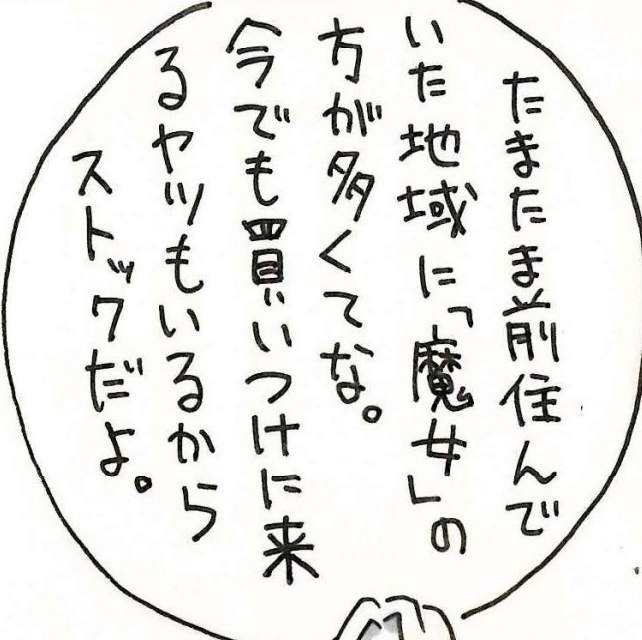 たまたま前住んで
いた地域に「魔女」の
方が多くてな。
今でも買いつけに来
るヤツもいるから
ストックだよ。